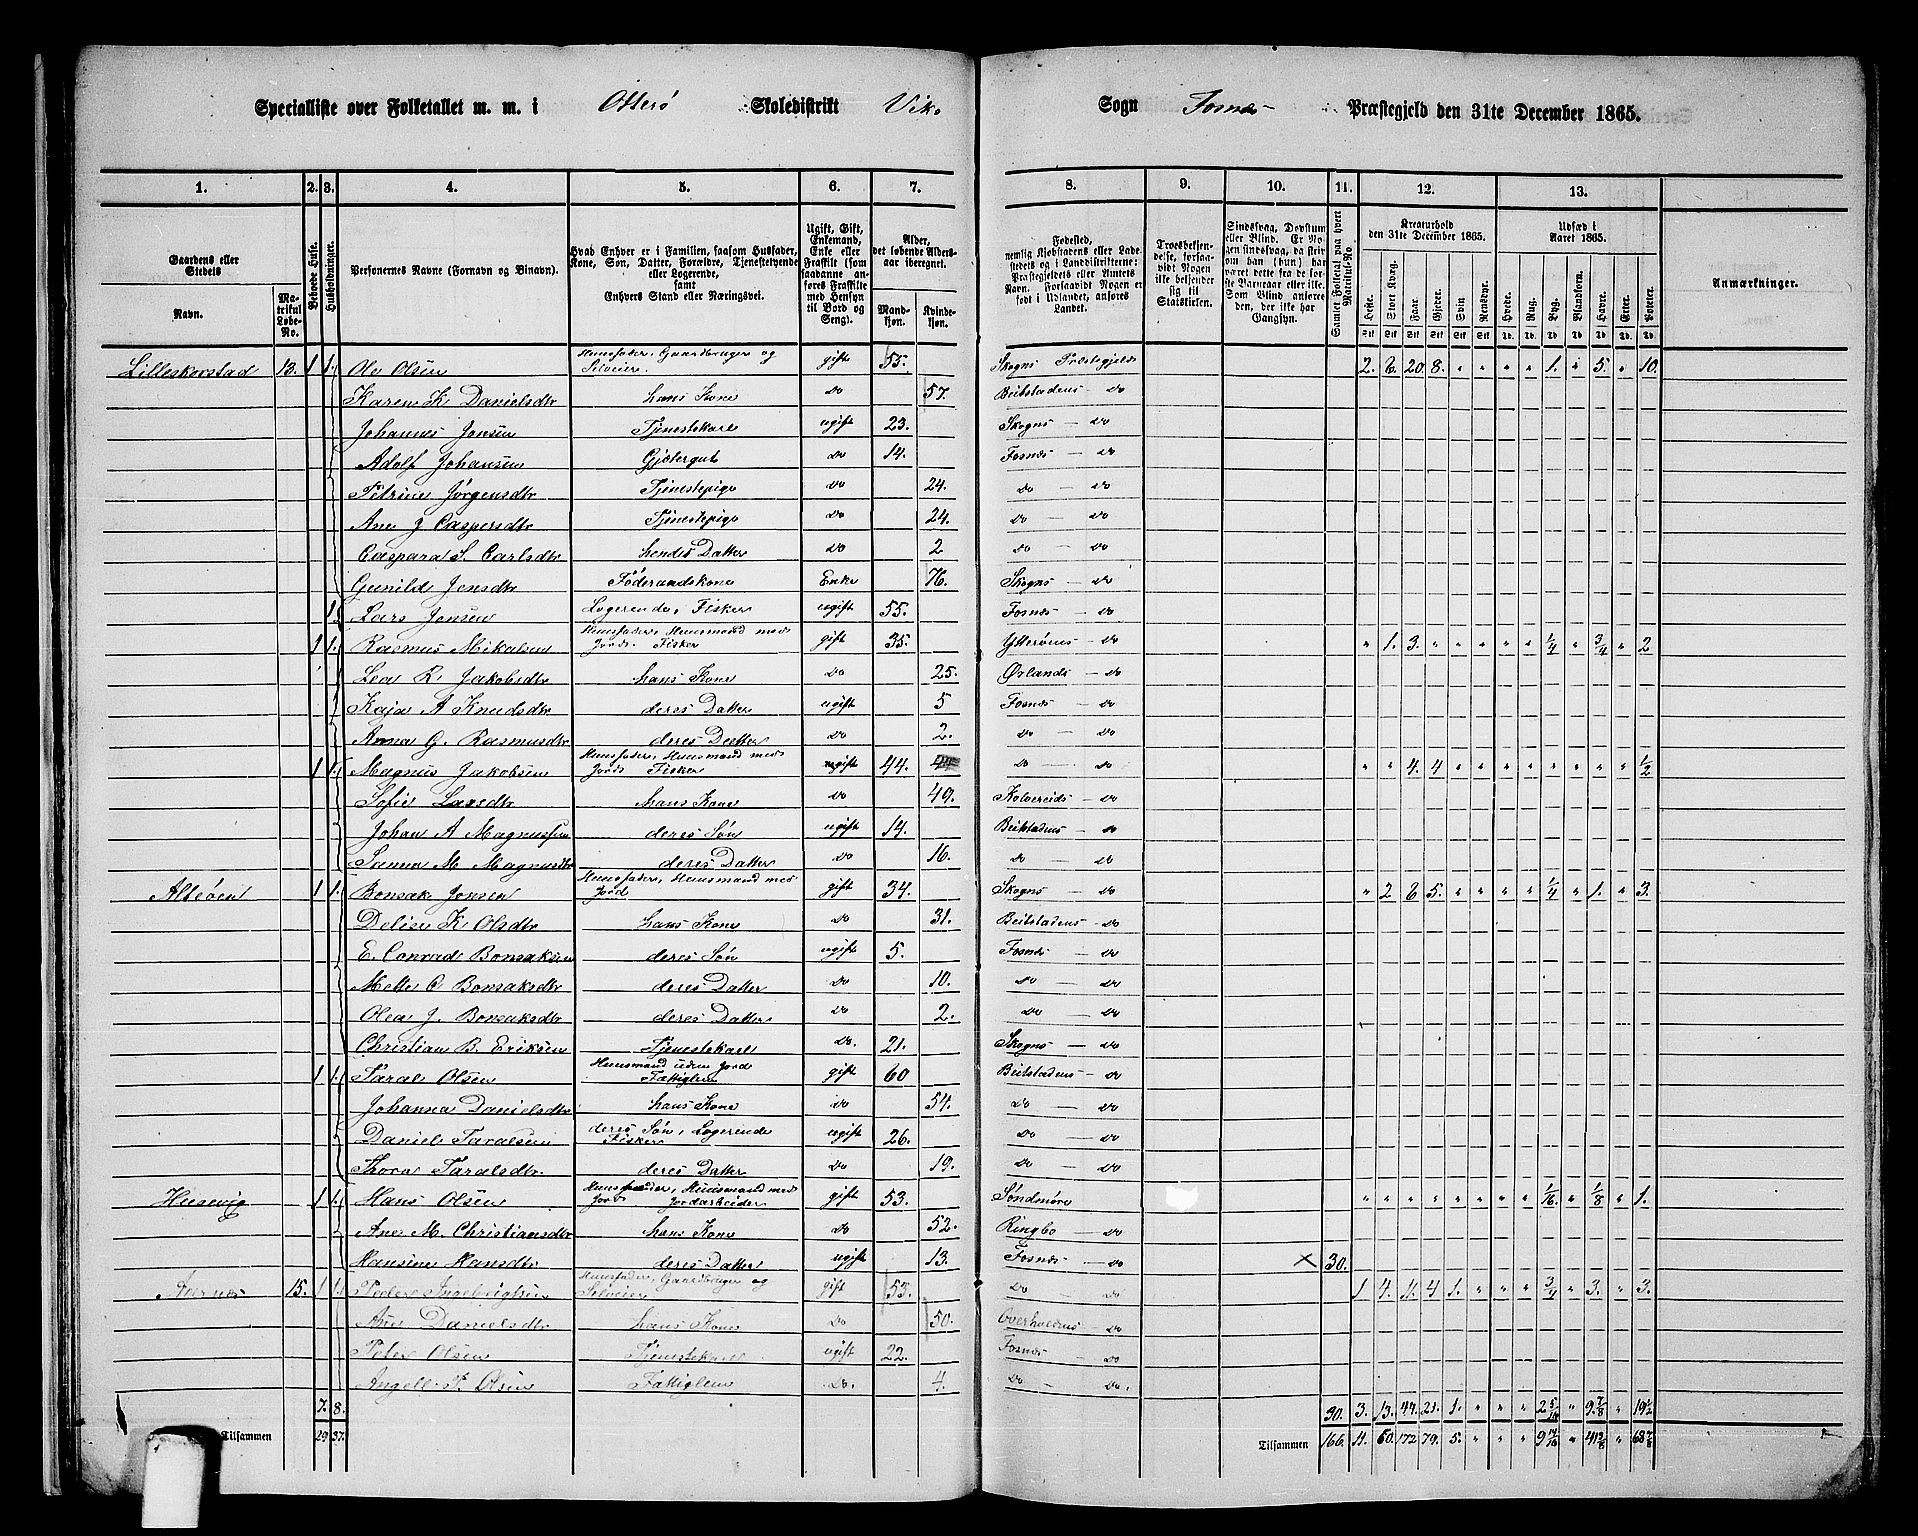 Specialliste over Folketallet m. m. i Otterø Skoledistrikt Vik. Sogn Fosnæs Præstegjeld den 31te December 1865.
1. 2. 3. 4. 5. 6. 7. 8. 9. 10. 11. 12. 13.
Gaardens eller Stedets
Navn.
Matrikul Løbe-No.
Beboede Huse.
Husholdninger.
Personernes Navne (Fornavn og Binavn).
Hvad Enhver er i Familien, saasom Husfader, Kone, Søn, Datter, Forældre, Tjenestetyende eller Logerende, samt Enhvers Stand eller Næringsvei.
Ugift, Gift, Enkemand, Enke eller Fraskilt (som saadanne anføres Fraskilte med Hensyn til Bord og Seng).
Alder, det løbende Aldersaar iberegnet.
Mandkjøn.
Kvindekjøn.
Fødested, nemlig Kjøbstadens eller Ladestedets og i Landdistrikterne: Præstegjeldets eller Amtets Navn. Forsaavidt Nogen er født i Udlandet, anføres Landet.
Troesbekjendelse, forsaavidt Nogen ikke bekjender sig til Statskirken.
Sindssvag, Døvstum eller Blind. Er Nogen sindssvag, anføres om han (hun) har været det fra de første Barneaar eller ei. Som Blind anføres den, der ikke har Gangsyn.
Samlet Folketal paa hvert Matrikul-No.
Kreaturhold den 31te December 1865.
Heste. Stort Kvæg. Faar. Gjeder. Svin. Rensdyr.
Udsæd i Aaret 1865.
Hvede. Rug. Byg. Blandkorn. Havre. Erter. Poteter.
Anmærkninger.
Lilleskorstad 13. 1 1. Ole Olsen Huusfader, Gaardbruger og Selveier. gift 55. Skogns Præstegjeld 2. 6. 20. 8. „ „ „ „ 1. „ 5. „ 10.
Karen K Danielsdtr hans Kone do 57. Beitstadens do
Johannes Jonsen Tjenestekarl ugift 23. Skogns do
Adolf Johansen Gjætergut do 14. Fosnæs do
Petrine Jørgensdtr Tjenestepige do 24. do do
Ane J Caspersdtr Tjenestepige do 24. do do
Caspara S. Carlsdtr hendes Datter do 2 do do
Gunild Jensdtr Føderaadskone Enke 76. Skogns do
1 Lars Jonsen Logerende, Fisker ugift 55. Fosnæs do
1 1. Rasmus Mikalsen Huusfader, Huusmand med Jord. Fisker gift 35. Ytterøens do „ 1. 3. „ „ „ „ „ 1/4 „ 3/4 „ 2
Lea R. Jakobsdtr hans Kone do 25. Ørlands do
Kaja A Knudsdtr deres Datter ugift 5 Fosnæs do
Anna G. Rasmusdtr deres Datter do 2. do do
1 1. Magnus Jakobsen Huusfader, Huusmand med Jord. Fisker gift 44. do do „ „ 4. 4 „ „ „ „ „ „ „ „ 1/2
Sofie Larsdtr hans Kone do 49. Kolvereids do
Johan A Magnussen deres Søn ugift 14. Beitstadens do
M. Magnusdtr deres Datter do 16. do do
Alteøen 1 1. Bonsak Jonsen Huusfader, Huusmand med Jord gift 34. Skogns do „ 2 8 5. „ „ „ „ 1/4 „ 1. „ 3.
Delise K Olsdtr hans Kone do 31. Beitstadens do
E. Conrad Bonsaksen deres Søn ugift 5. Fosnæs do
Mette C Bonsaksdtr deres Datter do 10. do do
Olea J. Bonsaksdtr deres Datter do 2. do do
Christian B. Eriksen Tjenestekarl do. 21. Skogns do
1 1. Taral Olsen Huusmand uden Jord Fattiglem gift 60 Beitstadens do
Johanna Danielsdtr hans Kone do 54. do do
Daniel Taralsen deres Søn, Logerende Fisker ugift 26. do do
Thora Taralsdtr. deres Datter do 19. do do
Husevig 1 1. Hans Olsen Huusfader, Huusmand med Jord Jordarbeider gift 53. Søndmøre „ „ „ „ „ „ „ „ 1/16 „ 1/8 „ 1.
Ane M. Christiansdtr hans Kone do 52. Ringbo do
Hansine Hansdtr deres Datter ugift 13. Fosnæs do × 30.
Aarnes 15. 1 1. Peder Ingebrigtsen Huusfader, Gaardbruger og Selveier gift 55. do do 1 4. 4 1. „ „ „ 3/4 „ 3. „ 3.
Ane Danielsdtr hans Kone do 50. Overhaldens do
Peter Olsen Tjenestekarl ugift 22. Fosnæs do
Olsen Fattiglem do. 4. do do.
7. 8. 30. 3. 13. 44. 21. 1. „ „ „ 2 5/16 „ 9 7/8 „ 19 1/2
Tilsammen 29 37. Tilsammen 166. 11. 60. 172 79. 5. „ „ „ „ „